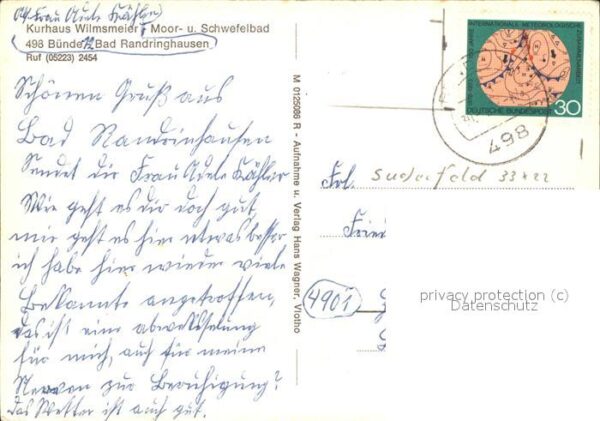 Frau Adele Kähler
Kurhaus Wilmsmeier, Moor- u. Schwefelbad
498 Bünde 12 Bad Randringhausen
Ruf (05223) 2454
Schönen Gruß aus
Bad Randrinhausen
Sendet dir Frau Adele Kähler
Wie geht es dir doch gut,
mir geht es hier etwas besser
ich habe hier wieder viele
Bekannte angetroffen,
das ist eine abwekselung
für mich, auf für meine
Nerven zur Beruhigung?
das Wetter ist auch gut.
M 0125086 R - Aufnahme u. Verlag Hans Wagner, Vlotho
INTERNATIONALE METEOROLOGISCHE ZUSAMMENARBEIT
DEUTSCHE BUNDESPOST
30
498
Frl. Suderfeld 33422
Fried
4901
privacy protection (c)
Datenschutz